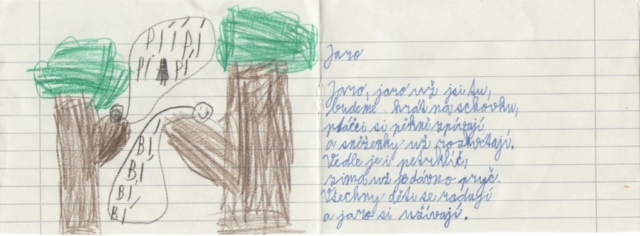 Pí Pí
Pí Pí
Bí
Bí
Bí
Bí
Jaro
Jaro, jaro už jsi tu,
budeme hrát na schovku,
ptáčci si pěkně zpívají
a sněženky už rozkvétají.
Vedle je i petrklíč,
zima už je dávno pryč.
Všechny děti se radují
a jaro si užívají.